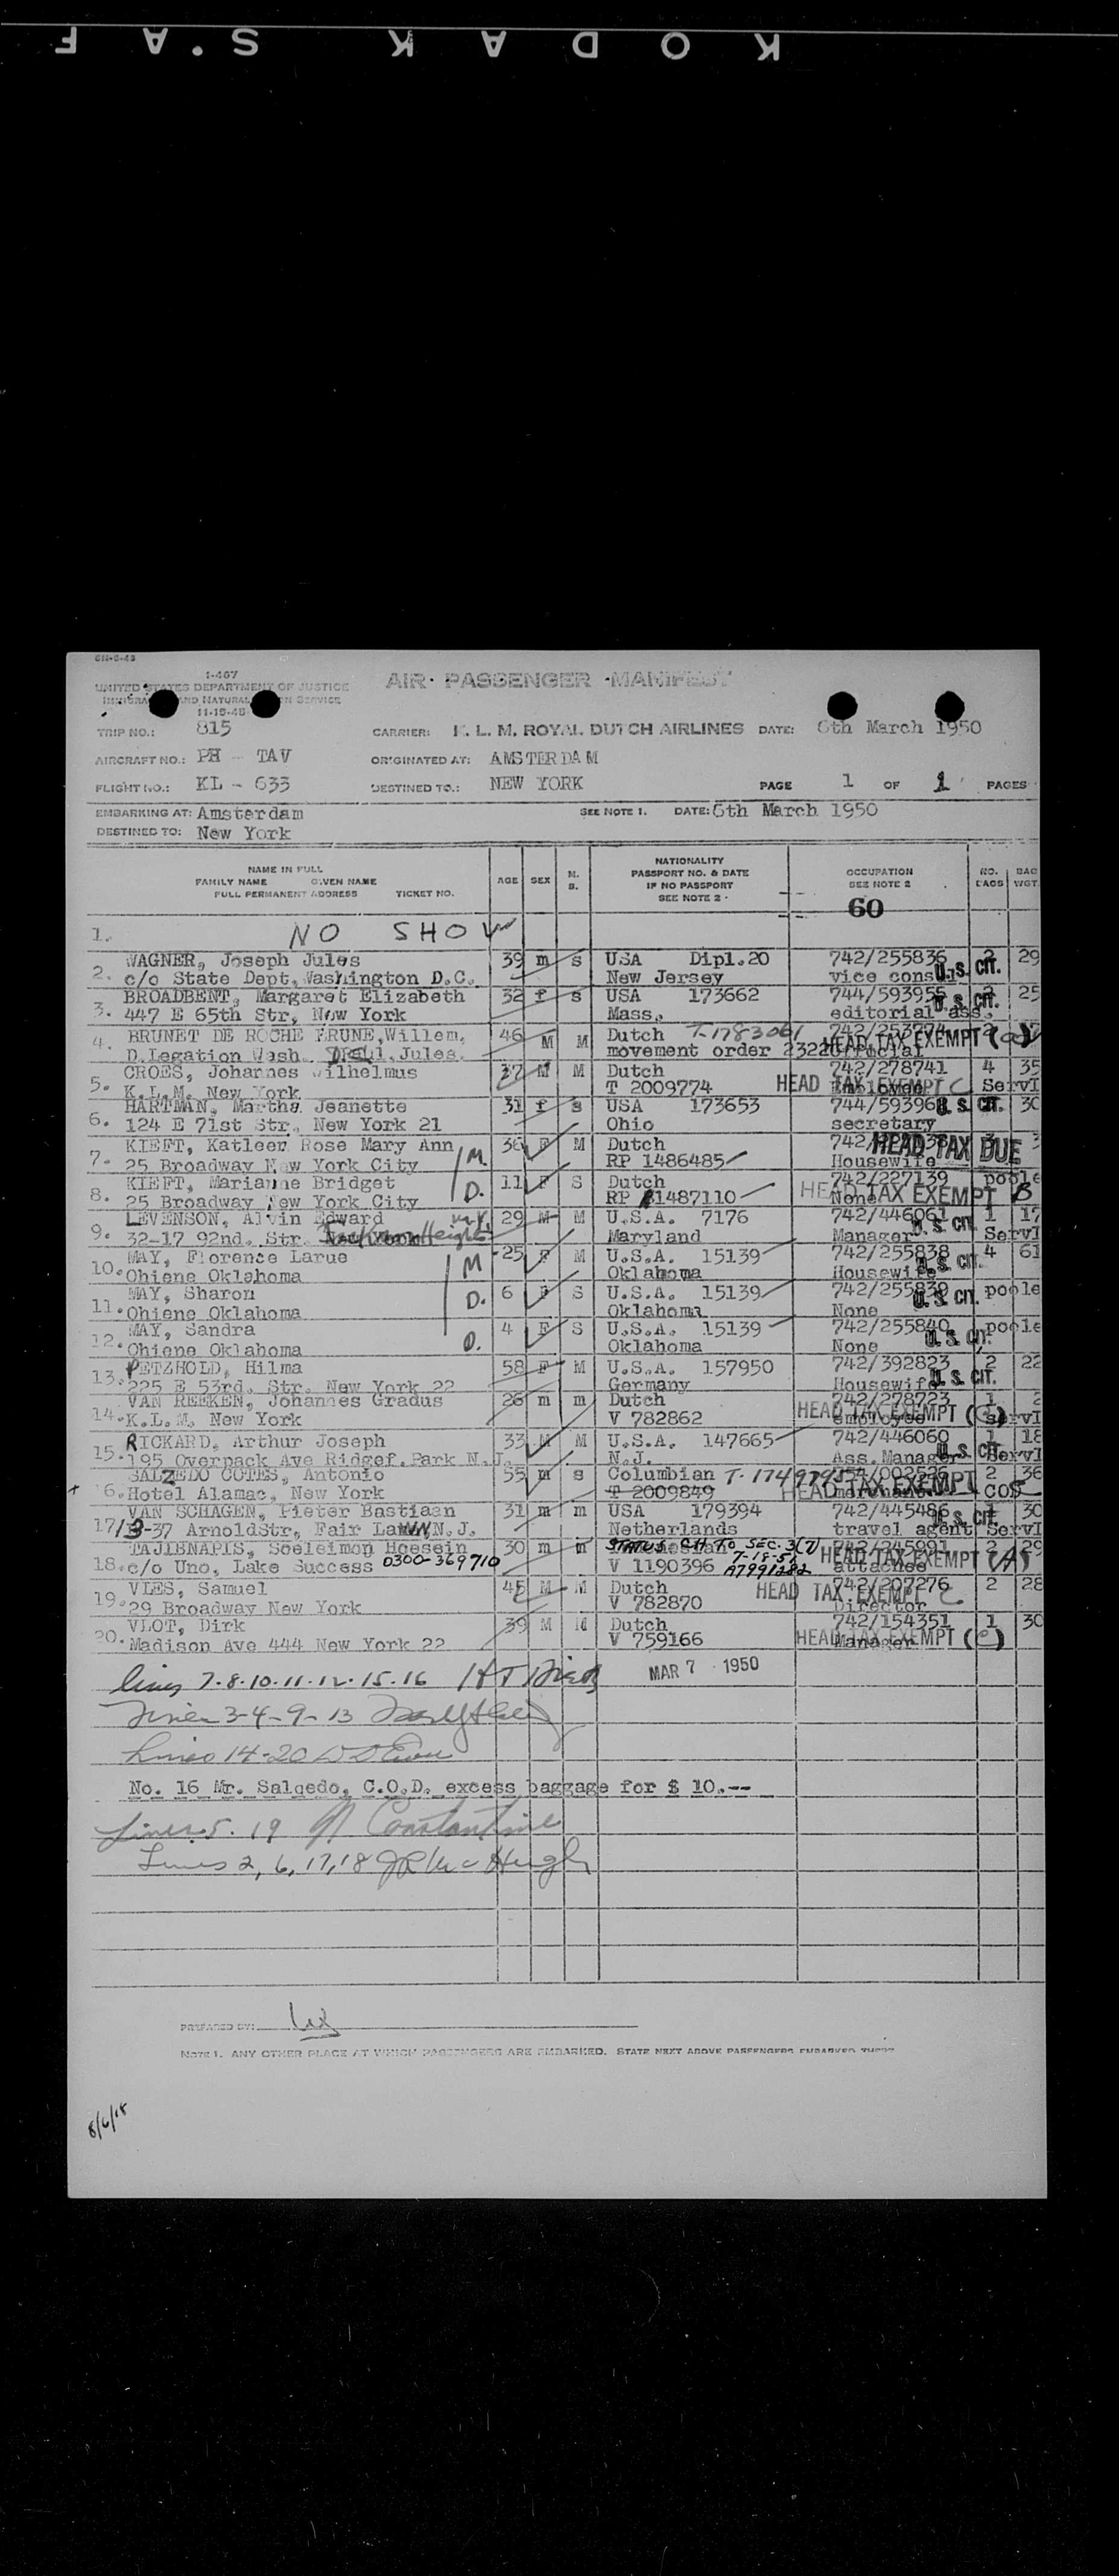 KODAK S.AF
1-467
UNITED STATES DEPARTMENT OF JUSTICE
AIR PASSENGER MANIFEST
11-15-48
TRIP NO.: 815 CARRIER: K. L. M. ROYAL DUTCH AIRLINES DATE: 6th March 1950
AIRCRAFT NO.: PH - TAV ORIGINATED AT: AMSTERDAM
FLIGHT NO.: KL - 633 DESTINED TO.: NEW YORK PAGE 1 OF 1 PAGES
EMBARKING AT: Amsterdam SEE NOTE 1. DATE: 6th March 1950
DESTINED TO: New York
NAME IN FULL
FAMILY NAME GIVEN NAME
FULL PERMANENT ADDRESS TICKET NO.
AGE SEX M. S.
NATIONALITY
PASSPORT NO. & DATE
IF NO PASSPORT
SEE NOTE 2
OCCUPATION
SEE NOTE 2
NO. BAGS BAG WGT.
60
1. NO SHOW
WAGNER, Joseph Jules 39 m s USA Dipl.20 742/255836 2 29
2. c/o State Dept, Washington D.C. New Jersey vice cons U.S. CIT.
BROADBENT, Margaret Elizabeth 32 f s USA 173662 744/593955 25
3. 447 E 65th Str, New York Mass. editorial ass. U.S. CIT.
BRUNET DE ROCHE BRUNE, Willem, 46 M M Dutch T-1783061
4. D.Legation Wash. Jules. movement order HEAD TAX EXEMPT
CROES, Johannes Wilhelmus 37 M M Dutch 742/278741 4 35
5. K.L.M. New York T 2009774 HEAD TAX EXEMPT C ServI
HARTMAN, Martha Jeanette 31 f s USA 173653 744/59396 U.S. CIT. 30
6. 124 E 71st Str., New York 21 Ohio secretary
KIEFT, Katleen Rose Mary Ann 36 F M Dutch HEAD TAX DUE
7. 25 Broadway New York City M. RP 1486485 Housewife
KIEFT, Marianne Bridget 11 F S Dutch 742/227139 poole
8. 25 Broadway New York City D. RP 1487110 None HEAD TAX EXEMPT B
LEVENSON, Alvin Edward 29 M M U.S.A. 7176 742/446061 1 17
9. 32-17 92nd. Str. Jackson Heights Maryland Manager U.S. CIT. ServI
MAY, Florence Larue 25 F M U.S.A. 15139 742/255838 4 61
10. Ohiene Oklahoma M Oklahoma Housewife U.S. CIT.
MAY, Sharon 6 F S U.S.A. 15139 742/255839 poole
11. Ohiene Oklahoma D. Oklahoma None U.S. CIT.
MAY, Sandra 4 F S U.S.A. 15139 742/255840 poole
12. Ohiene Oklahoma D. Oklahoma None U.S. CIT.
PETZHOLD, Hilma 58 F M U.S.A. 157950 742/392823 2 22
13. 225 E 53rd. Str. New York 22 Germany Housewife U.S. CIT.
VAN REEKEN, Johannes Gradus 26 m m Dutch 742/278723 1 2
14. K.L.M. New York V 782862 employee HEAD TAX EXEMPT (C) ServI
RICKARD, Arthur Joseph 33 M M U.S.A. 147665 742/446060 1 18
15. 195 Overpack Ave Ridgef.Park N.J. N.J. Ass.Manager U.S. CIT. ServI
SALZEDO COTES, Antonio 55 m s Columbian 2 36
16. Hotel Alamac, New York T 2009849 HEAD TAX EXEMPT COD
VAN SCHAGEN, Pieter Bastiaan 31 m m USA 179394 742/445486 1 30
17. 13-37 ArnoldStr, Fair Lawn, N.J. Netherlands travel agent U.S. CIT. ServI
TAJIBNAPIS, Soeleimon Hoesein 30 m m STATUS CH TO SEC. 3(7) 742/245991 2 29
18. c/o Uno, Lake Success 0300-369710 V 1190396 7-18-51 A7991282 attachee HEAD TAX EXEMPT (A)
VLES, Samuel 45 M M Dutch 742/207276 2 28
19. 29 Broadway New York V 782870 HEAD TAX EXEMPT C Director
VLOT, Dirk 39 M M Dutch 742/154351 1 30
20. Madison Ave 444 New York 22 V 759166 HEAD TAX EXEMPT (C) Manager
lines 7-8-10-11-12-15-16
MAR 7 1950
Lines 3-4-9-13
Lines 14-20
No. 16 Mr. Salqedo, C.O.D. excess baggage for $ 10.--
Lines 5. 19 Constantine
Lines 2, 6, 17, 18 McHugh
PREPARED BY:
NOTE 1. ANY OTHER PLACE AT WHICH PASSENGERS ARE EMBARKED. STATE NEXT ABOVE PASSENGERS EMBARKED THERE